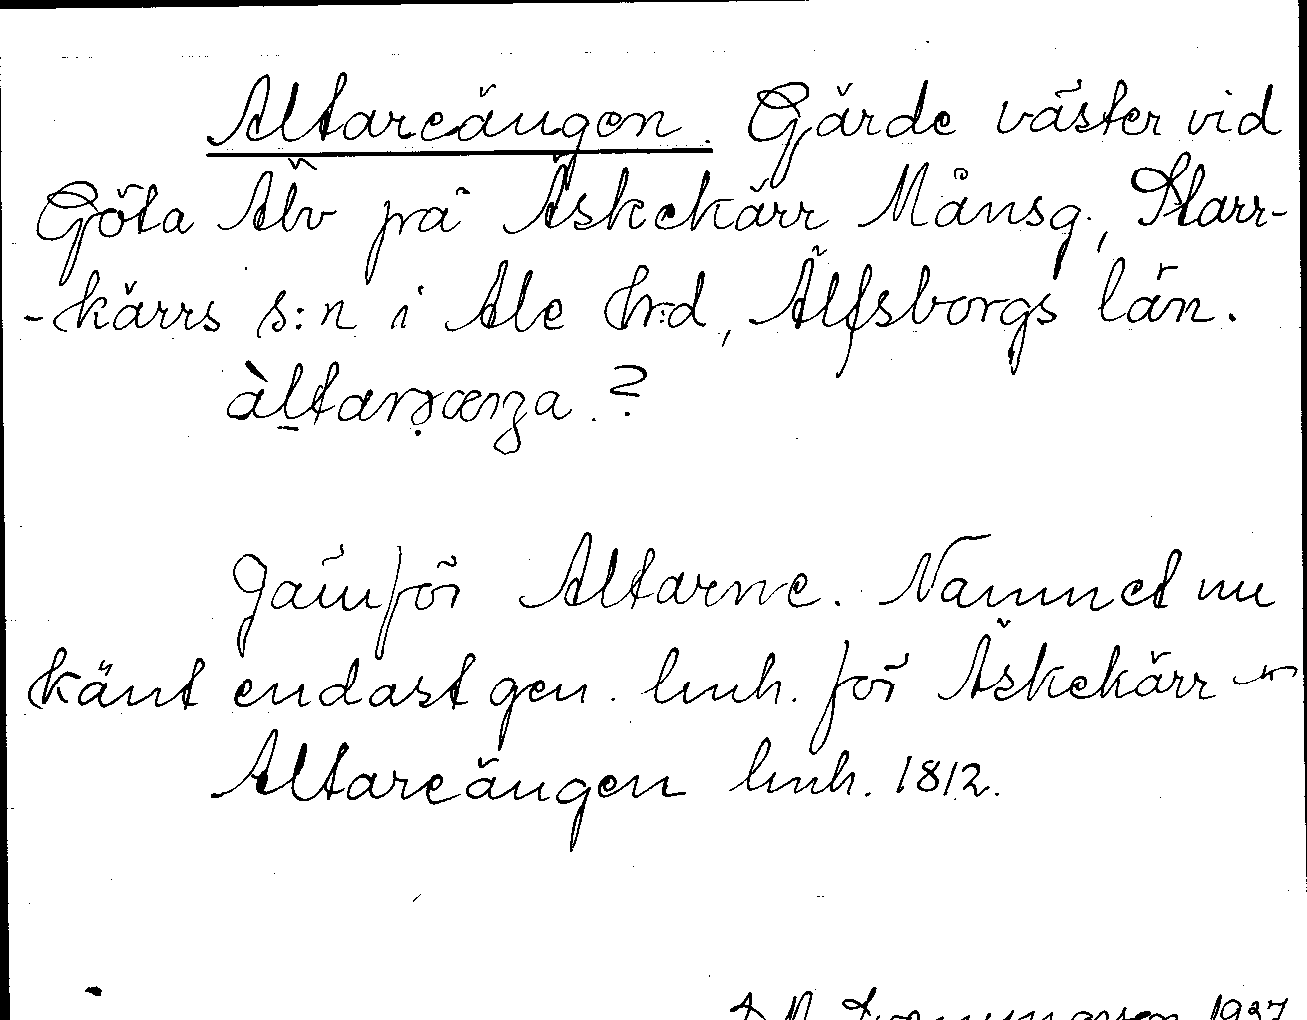 Altareängen. Gärde väster vid
Göta Älv på Äskekärr Månsg., Starr-
-kärrs s:n i Ale hrd, Älfsborgs län.
àltarɔænga.?
Jämför Altarne. Namnet nu
känt endast gen. lmh. för Äskekärr
Altareängen lmh. 1812.
1927